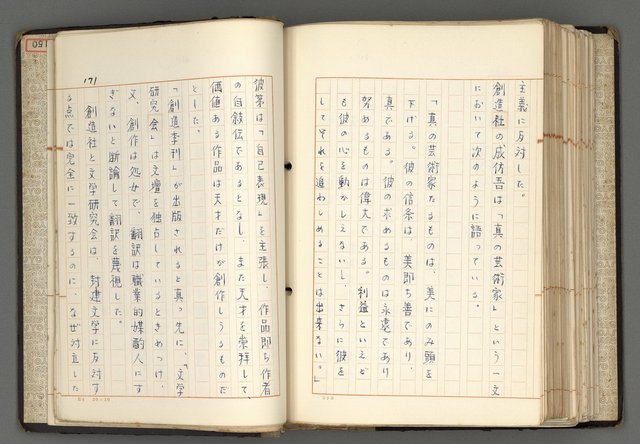 主義に反対した。
創造社の成仿吾は「真の芸術家」という一文
において次のように語っている。
「真の芸術家たるものは、美にのみ頭を
下げる。彼の信条は、美即ち善であり、
真である。彼の求めるものは永遠であり
努めるものは偉大である。利益といえど
も彼の心を動かしえないし、さらに彼を
してそれを追わしめることは出来ない。」
171
彼等は「自己表現」を主張し、作品即ち作者
の自叙伝であるとなし、また天才を崇拝して、
価値ある作品は天才だけが創作しうるものだ
とした。
「創造季刊」が出版されると真っ先に、「文学
研究会」は文壇を独占しているときめつけ、
又、創作は処女で、翻訳は職業的媒酌人にす
ぎないと断論して翻訳を蔑視した。
創造社と文学研究会は、封建文学に反対す
る点では完全に一致するのに、なぜ対立した
150